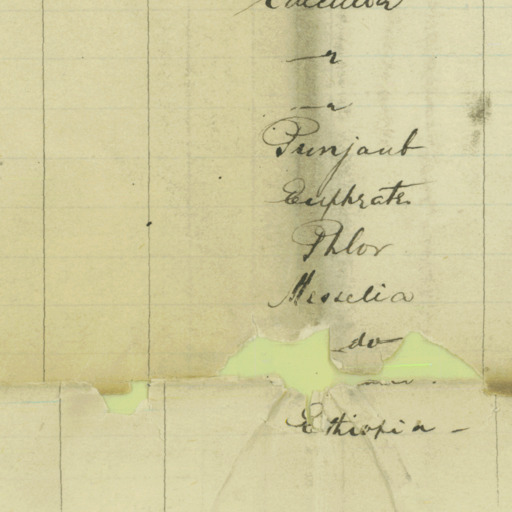 Punjaub
Euphrates
Phlox
Messelia
do
Ethiopia -